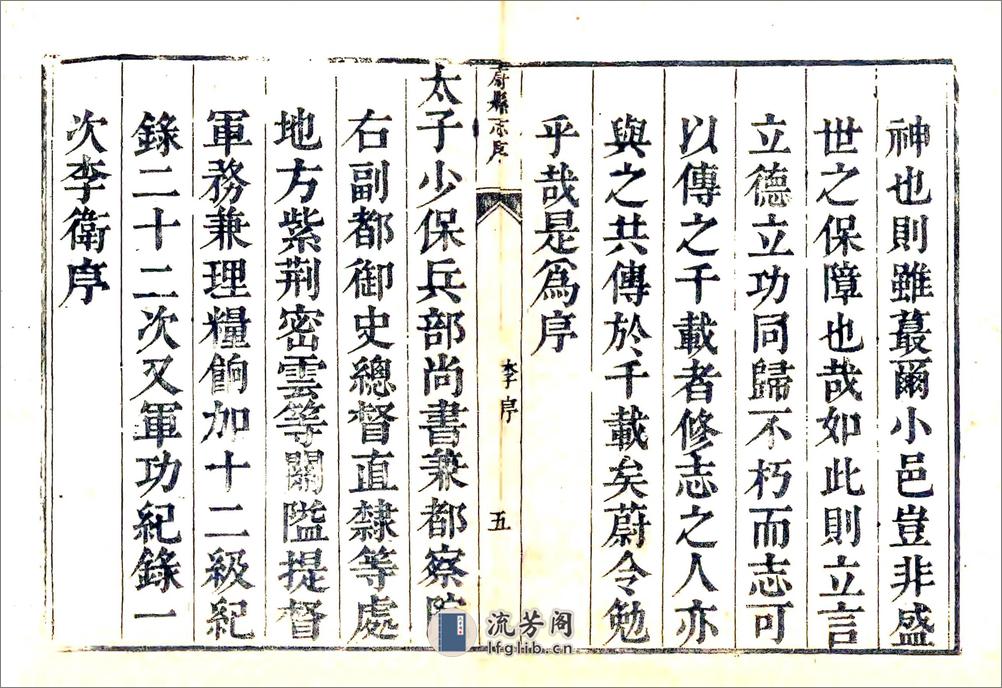 神也則雖蕞爾小邑豈非盛
世之保障也哉如此則立言
立德立功同歸不朽而志可
以傳之千載者修志之人亦
與之共傳於千載矣蔚令勉
乎哉是爲序
蔚縣志序
李序
五
太子少保兵部尚書兼都察院
右副都御史總督直隸等處
地方紫荆密雲等關隘提督
軍務兼理糧餉加十二級紀
錄二十二次又軍功紀錄一
次李衛序
流芳阁
lfglib.cn